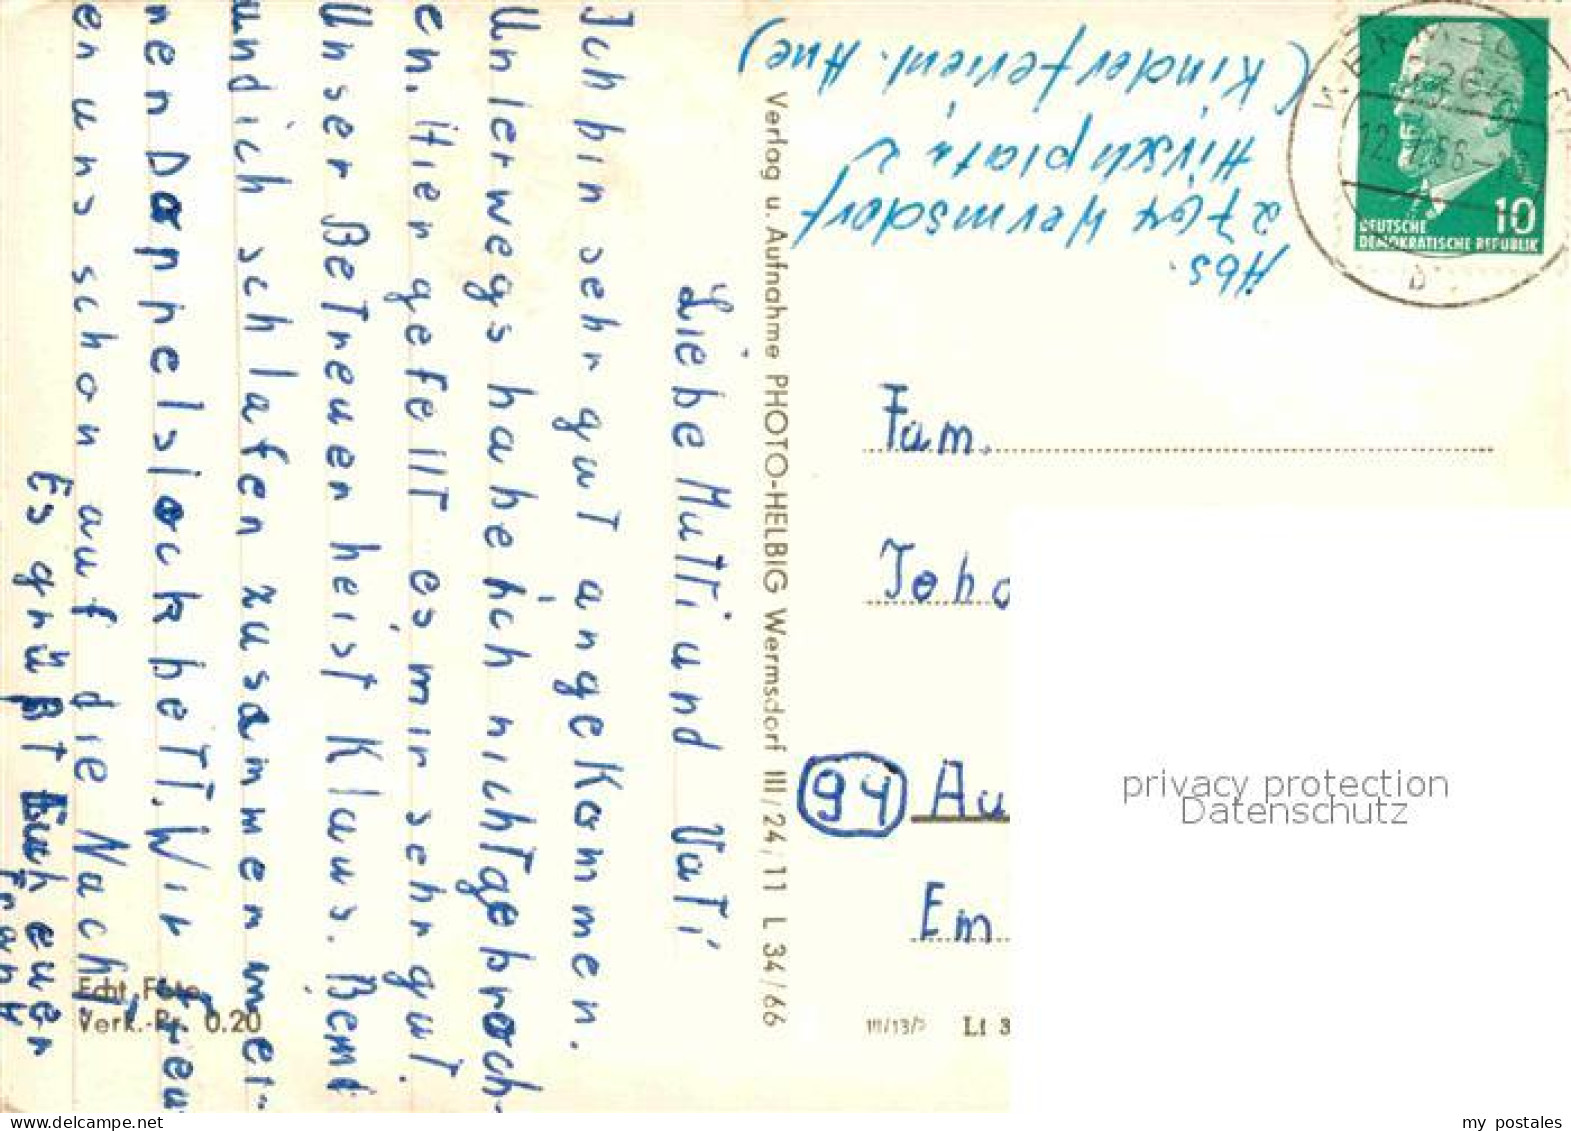 Liebe Mutti und Vati
Ich bin sehr gut angekommen.
Unterwegs habe ich nicht gebroch-
en. Hier gefellt es mir sehr gut.
Unser Betreuer heist Klaus. Bernd
und ich schlafen zusammen in ei-
nen Doppelstockbett. Wir freu
en uns schon auf die Nacht.
Es grüßt Euch euer
Frank
Echt Foto
Verk.-Pr. 0.20
Verlag u. Aufnahme PHOTO-HELBIG Wermsdorf III/24, 11 L 34/66
Abs.
Wermsdorf
Hirschplatz 2
(Kinderferienl. Aue)
WERMSDORF
10
DEUTSCHE
DEMOKRATISCHE REPUBLIK
Fam.
Joha
94 Au
Em
III/13/5 Lt 3
privacy protection
Datenschutz
my postales
www.delcampe.net